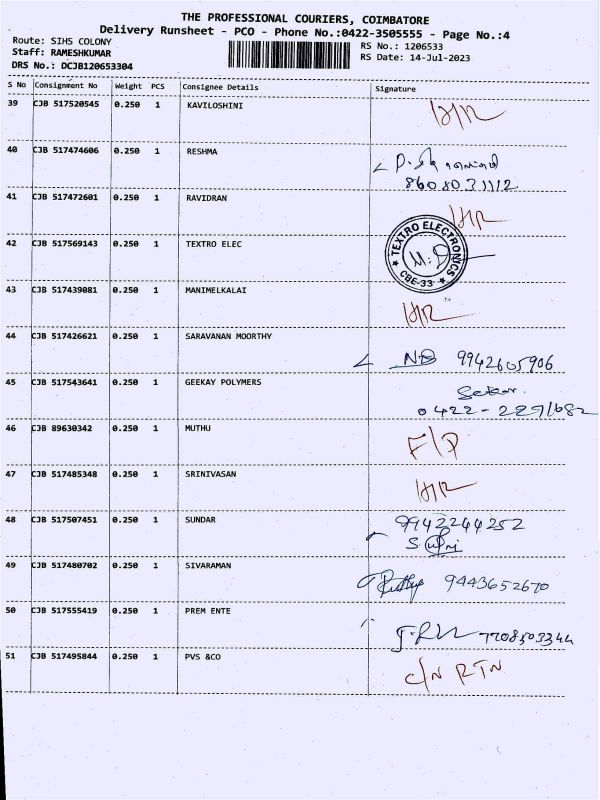 THE PROFESSIONAL COURIERS, COIMBATORE
Delivery Runsheet - PCO - Phone No.:0422-3505555 - Page No.:4
Route: SIHS COLONY RS No.: 1206533
Staff: RAMESHKUMAR RS Date: 14-Jul-2023
DRS No.: DCJB120653304
S No Consignment No Weight PCS Consignee Details Signature
39 CJB 517520545 0.250 1 KAVILOSHINI
40 CJB 517474606 0.250 1 RESHMA
8608031112
41 CJB 517472601 0.250 1 RAVIDRAN
42 CJB 517569143 0.250 1 TEXTRO ELEC
TEXTRO ELECTRONICS
CBE-33
43 CJB 517439081 0.250 1 MANIMELKALAI
44 CJB 517426621 0.250 1 SARAVANAN MOORTHY
9942605906
45 CJB 517543641 0.250 1 GEEKAY POLYMERS
46 CJB 89630342 0.250 1 MUTHU
F/P
47 CJB 517485348 0.250 1 SRINIVASAN
48 CJB 517507451 0.250 1 SUNDAR
9942244252
49 CJB 517480702 0.250 1 SIVARAMAN
9443652670
50 CJB 517555419 0.250 1 PREM ENTE
7708503344
51 CJB 517495844 0.250 1 PVS &CO
C/N RTN